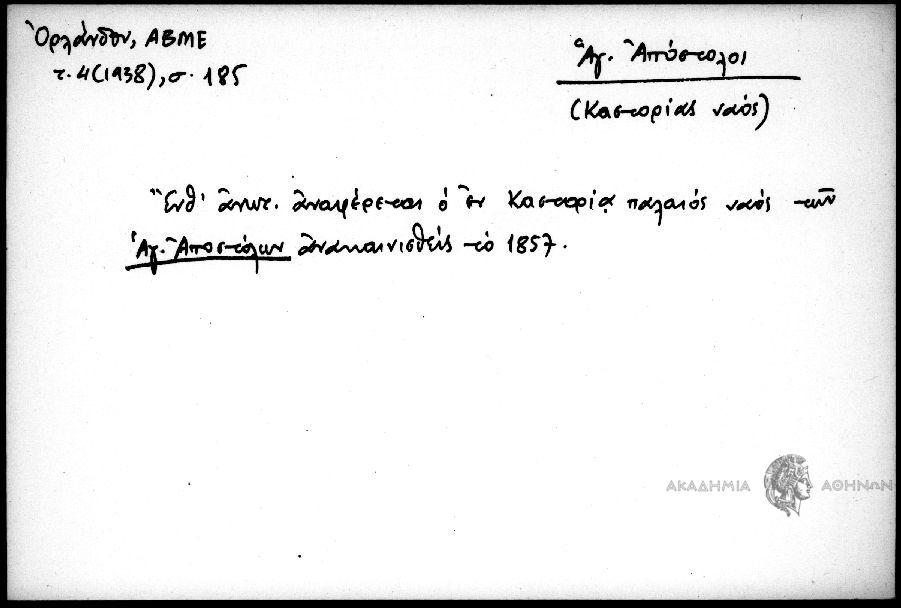 Ὀρλάνδου, ΑΒΜΕ
τ. 4 (1938), σ. 185
Ἁγ. Ἀπόστολοι
(Καστορίας ναός)
Ἔνθ' ἀνωτ. ἀναφέρεται ὁ ἐν Καστορίᾳ παλαιός ναός τῶν
Ἁγ. Ἀποστόλων ἀνακαινισθείς τὸ 1857.
ΑΚΑΔΗΜΙΑ ΑΘΗΝΩΝ